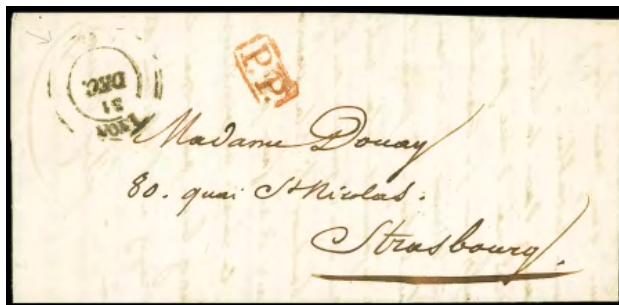 LYON
31
DEC.
P.P.
Madame Douay
80. quai St Nicolas.
Strasbourg.